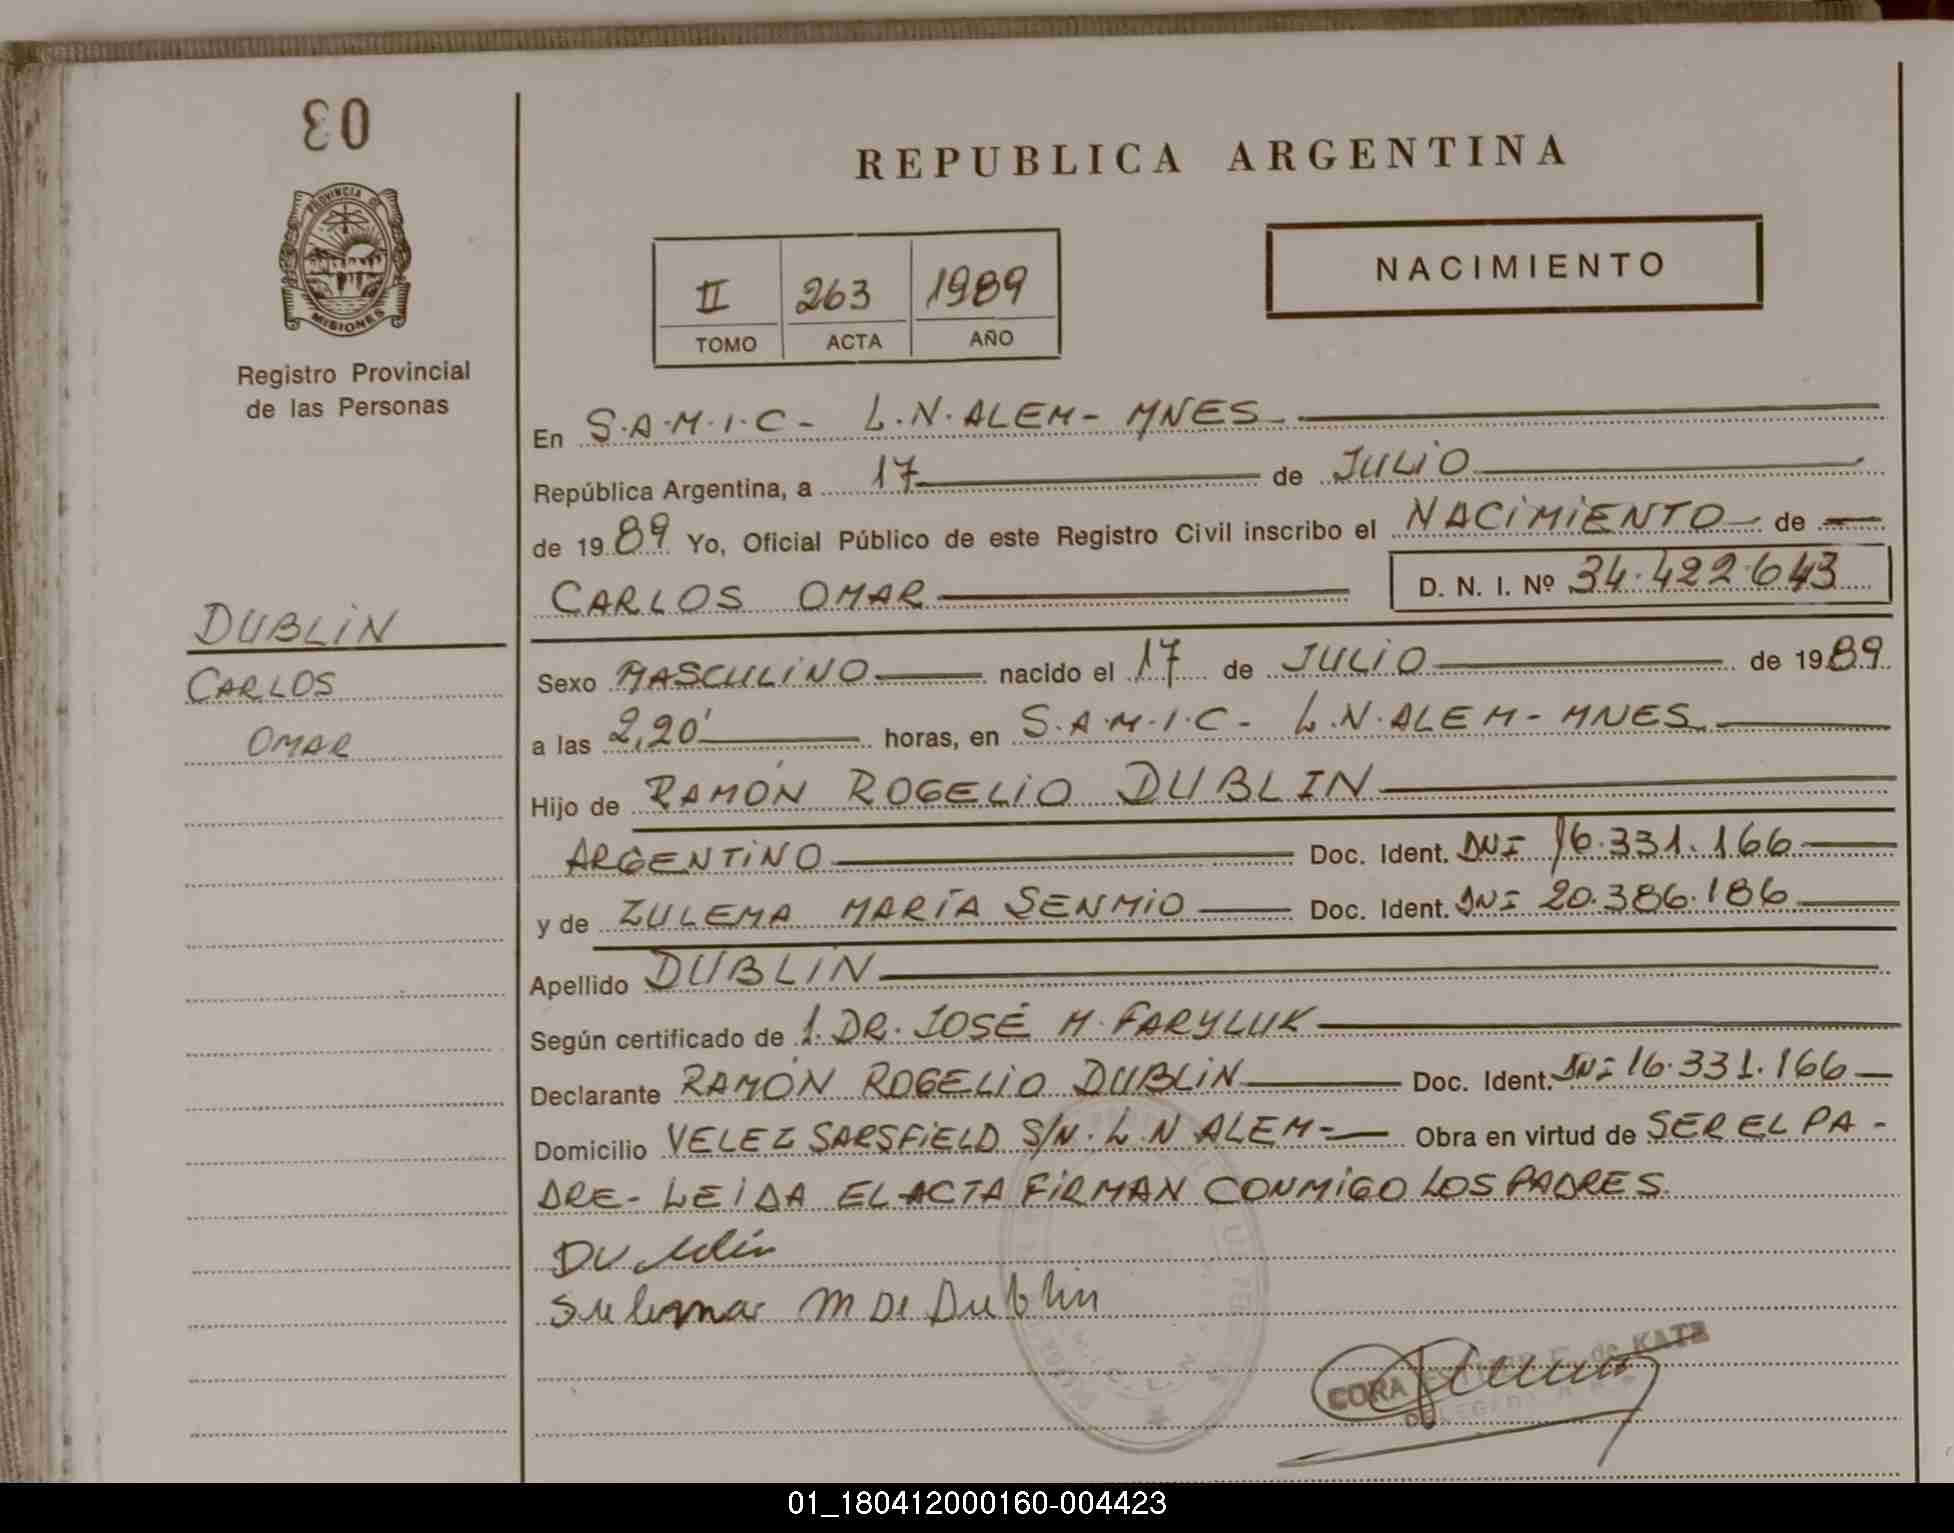 03
PROVINCIA DE
MISIONES
Registro Provincial
de las Personas
DUBLIN
CARLOS
OMAR
REPUBLICA ARGENTINA
II 263 1989
TOMO ACTA AÑO
NACIMIENTO
En S.A.M.I.C- L.N.ALEM- MNES
República Argentina, a 17 de JULIO
de 1989 Yo, Oficial Público de este Registro Civil inscribo el NACIMIENTO de
CARLOS OMAR D. N. I. Nº 34.422.643
Sexo MASCULINO nacido el 17 de JULIO de 1989
a las 2,20' horas, en S.A.M.I.C- L.N.ALEM- MNES
Hijo de RAMÓN ROGELIO DUBLIN
ARGENTINO Doc. Ident. DNI 16.331.166
y de ZULEMA MARÍA SENMIO Doc. Ident. DNI 20.386.186
Apellido DUBLIN
Según certificado de 1. DR. JOSÉ M. FARYLUK
Declarante RAMÓN ROGELIO DUBLIN Doc. Ident. DNI 16.331.166
Domicilio VELEZ SARSFIELD S/N. L.N ALEM- Obra en virtud de SER EL PA-
DRE- LEIDA EL ACTA FIRMAN CONMIGO LOS PADRES.
M De Dublin
CORA E. de KATZ
01_180412000160-004423